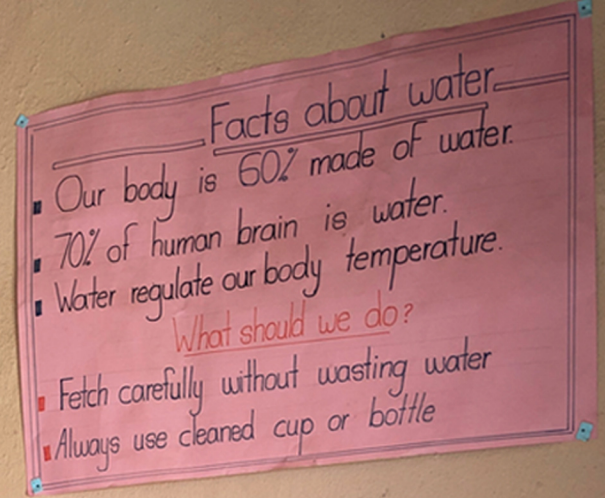 Facts about water
Our body is 60% made of water.
70% of human brain is water.
Water regulate our body temperature.
What should we do?
Fetch carefully without wasting water
Always use cleaned cup or bottle